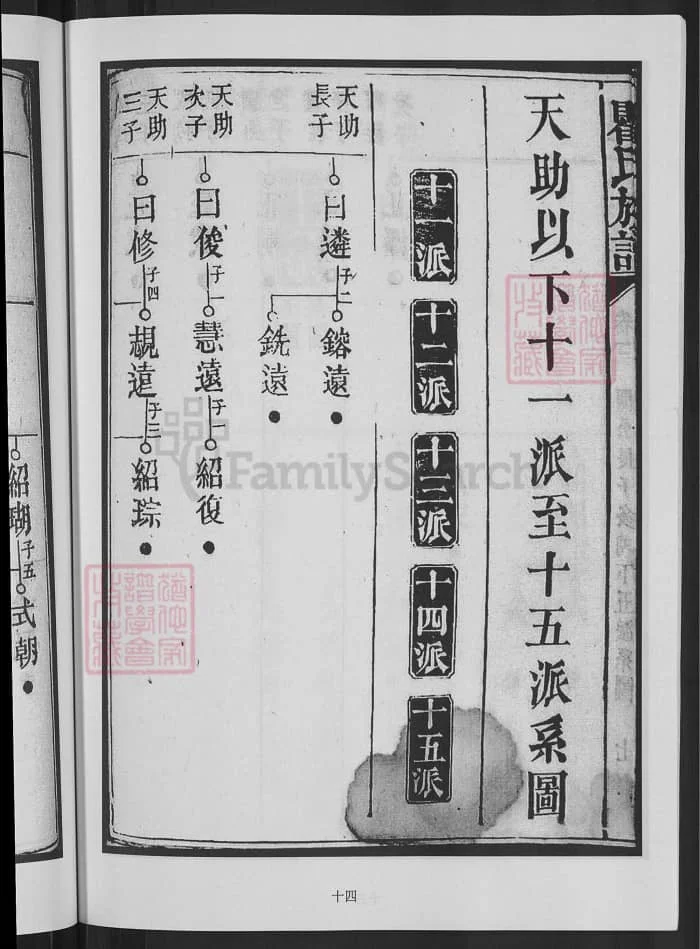 瞿氏族譜
天助以下十一派至十五派系圖
十一派
十二派
十三派
十四派
十五派
天助
長子
曰遴
子二
鎔遠
銑遠
天助
次子
曰俊
子一
慧遠
子一
紹復
天助
三子
曰修
子四
覘遠
子三
紹琮
紹瑚
子五
式朝
FamilySearch
十四